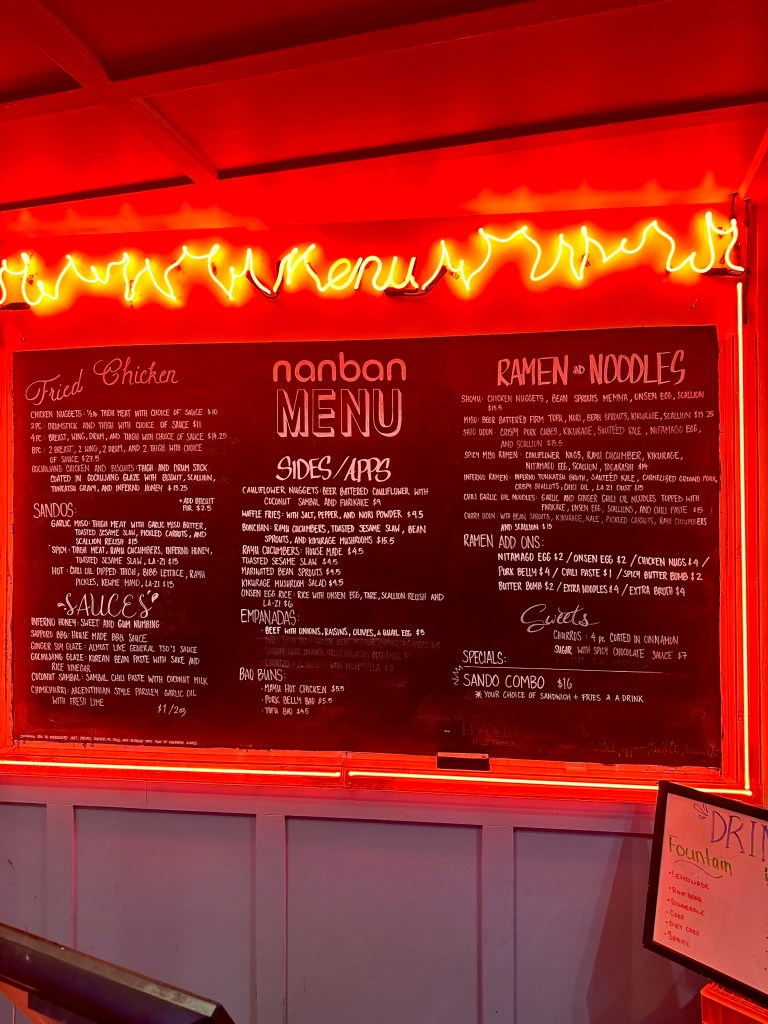 Menu
Fried Chicken
CHICKEN NUGGETS: 1/2 lb THIGH MEAT WITH CHOICE OF SAUCE $10
2 PC: DRUMSTICK AND THIGH WITH CHOICE OF SAUCE $11
4 PC: BREAST, WING, DRUM, AND THIGH WITH CHOICE OF SAUCE $19.25
8 PC: 2 BREAST, 2 WING, 2 DRUM, AND 2 THIGH WITH CHOICE
OF SAUCE $27.5
GOCHUJANG CHICKEN AND BISCUITS: THIGH AND DRUM STICK
COATED IN GOCHUJANG GLAZE WITH BISCUIT, SCALLION,
TONKATSU GRAVY, AND INFERNO HONEY $13.25
+ADD BISCUIT
FOR $2.5
SANDOS:
GARLIC MISO: THIGH MEAT WITH GARLIC MISO BUTTER,
TOASTED SESAME SLAW, PICKLED CARROTS, AND
SCALLION RELISH $15
SPICY: THIGH MEAT, RAMU CUCUMBERS, INFERNO HONEY,
TOASTED SESAME SLAW, LA-ZI $15
HOT: CHILI OIL DIPPED THIGH, BIBB LETTUCE, RAMU
PICKLES, KEWPIE MAYO, LA-ZI $15
SAUCES
INFERNO HONEY: SWEET AND GUM NUMBING
SAPPORO BBQ: HOUSE MADE BBQ SAUCE
GINGER SOY GLAZE: ALMOST LIKE GENERAL TSO'S SAUCE
GOCHUJANG GLAZE: KOREAN BEAN PASTE WITH SAKE AND
RICE VINEGAR
COCONUT SAMBAL: SAMBAL CHILI PASTE WITH COCONUT MILK
CHIMICHURRI: ARGENTINIAN STYLE PARSLEY GARLIC OIL
WITH FRESH LIME
$1/2oz
nanban
MENU
SIDES/APPS
CAULIFLOWER NUGGETS: BEER BATTERED CAULIFLOWER WITH
COCONUT SAMBAL AND FURIKAKE $9
WAFFLE FRIES: WITH SALT, PEPPER, AND NORI POWDER $4.5
BONCHAN: RAMU CUCUMBERS, TOASTED SESAME SLAW, BEAN
SPROUTS, AND KIKURAGE MUSHROOMS $15.5
RAMU CUCUMBERS: HOUSE MADE $4.5
TOASTED SESAME SLAW $4.5
MARINATED BEAN SPROUTS $4.5
KIKURAGE MUSHROOM SALAD $4.5
ONSEN EGG RICE: RICE WITH ONSEN EGG, TARE, SCALLION RELISH AND
LA-ZI $6
EMPANADAS:
- BEEF WITH ONIONS, RAISINS, OLIVES, & QUAIL EGG $5
BAO BUNS:
- MAYU HOT CHICKEN $5.5
- PORK BELLY BAO $5.5
- TOFU BAO $4.5
RAMEN AND NOODLES
SHOYU: CHICKEN NUGGETS, BEAN SPROUTS MEMMA, ONSEN EGG, SCALLION
$15.5
MISO: BEER BATTERED FIRM TOFU, NORI, BEAN SPROUTS, KIKURAGE, SCALLION $15.25
SHIO DOON: CRISPY PORK CUBES, KIKURAGE, SAUTÉED KALE, NITAMAGO EGG,
AND SCALLION $15.5
SPICY MISO RAMEN: CAULIFLOWER NUGS, RAMU CUCUMBER, KIKURAGE,
NITAMAGO EGG, SCALLION, TOGARASHI $14
INFERNO RAMEN: INFERNO TONKATSU BROTH, SAUTÉED KALE, CARMELIZED GROUND PORK,
CRISPY SHALLOTS, CHILI OIL, LA-ZI DUST $15
CHILI GARLIC OIL NOODLES: GARLIC AND GINGER CHILI OIL NOODLES TOPPED WITH
FURIKAKE, ONSEN EGG, SCALLIONS, AND CHILI PASTE $15
CURRY UDON: WITH BEAN SPROUTS, KIKURAGE, KALE, PICKLED CARROTS, RAMU CUCUMBERS
AND SCALLION $15
RAMEN ADD ONS:
NITAMAGO EGG $2 / ONSEN EGG $2 / CHICKEN NUGS $4 /
PORK BELLY $4 / CHILI PASTE $1 / SPICY BUTTER BOMB $2
BUTTER BOMB $2 / EXTRA NOODLES $4 / EXTRA BROTH $4
Sweets
CHURROS: 4 pc COATED IN CINNAMON
SUGAR WITH SPICY CHOCOLATE SAUCE $7
SPECIALS:
SANDO COMBO $16
* YOUR CHOICE OF SANDWICH + FRIES & A DRINK
DRIN
Fountain
• LEMONADE
• ROOTBEER
• GINGERALE
• COKE
• DIET COKE
• SPRITE